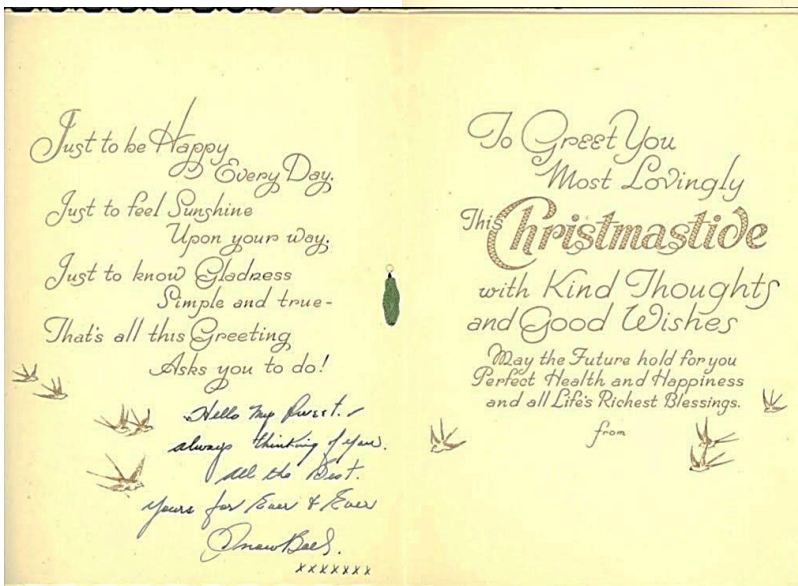 Just to be Happy
Every Day.
Just to feel Sunshine
Upon your way.
Just to know Gladness
Simple and true-
That's all this Greeting
Asks you to do!
Hello My Sweet.
always thinking of you.
All the Best.
Yours for Ever & Ever
SnowBall.
xxxxxxx
To Greet You
Most Lovingly
This Christmastide
with Kind Thoughts
and Good Wishes
May the Future hold for you
Perfect Health and Happiness
and all Life's Richest Blessings.
from